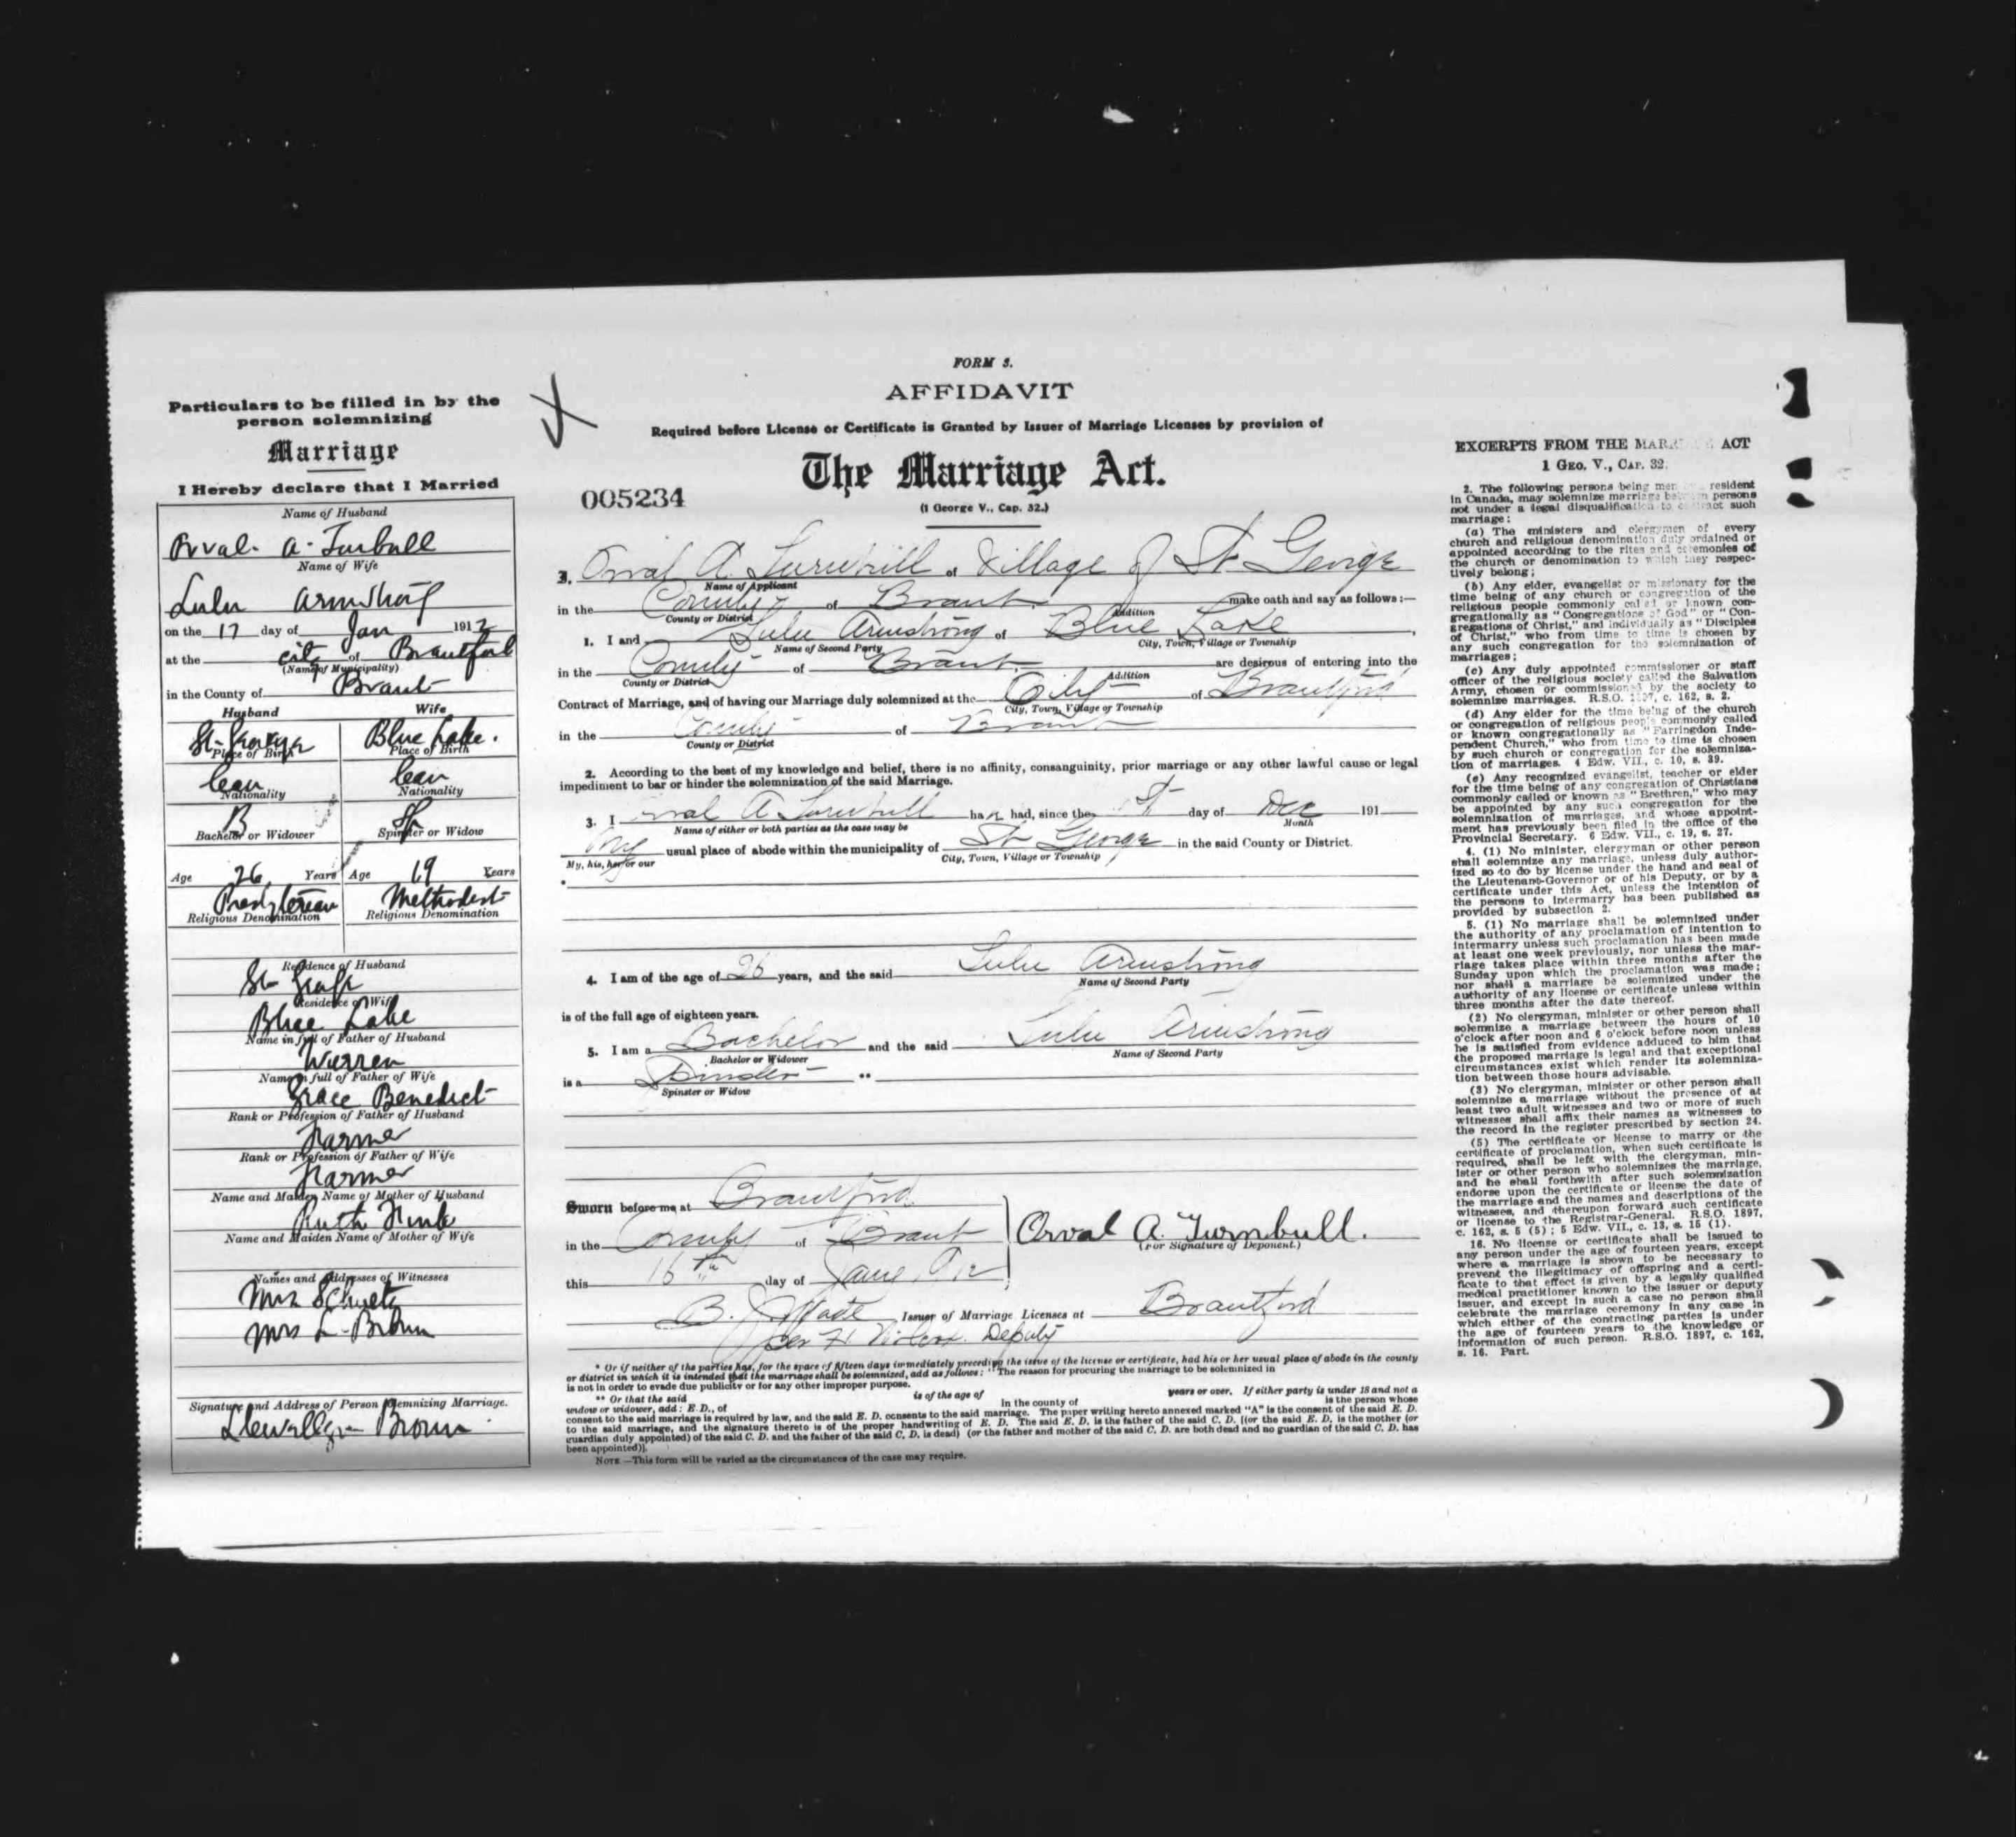 Particulars to be filled in by the
person solemnizing
Marriage
I Hereby declare that I Married
Name of Husband
Orval. A. Turbull
Name of Wife
Lulu Armstrong
on the 17 day of Jan 1912
at the city of Brantford
(Name of Municipality)
in the County of Brant
Husband Wife
St. George Blue Lake.
Place of Birth Place of Birth
Can Can
Nationality Nationality
B Sp
Bachelor or Widower Spinster or Widow
Age 26 Years Age 19 Years
Presbyterian Methodist
Religious Denomination Religious Denomination
Residence of Husband
St George
Residence of Wife
Blue Lake
Name in full of Father of Husband
Warren
Name in full of Father of Wife
Grace Benedict
Rank or Profession of Father of Husband
Farmer
Rank or Profession of Father of Wife
Farmer
Name and Maiden Name of Mother of Husband
Ruth
Name and Maiden Name of Mother of Wife
Names and Addresses of Witnesses
Mrs Schultz
Mrs L. Brown
Signature and Address of Person Solemnizing Marriage.
Llewellyn Brown
FORM 3.
AFFIDAVIT
Required before License or Certificate is Granted by Issuer of Marriage Licenses by provision of
The Marriage Act.
005234
(1 George V., Cap. 32.)
I, Orval A. Turnbull of Village of St. George
Name of Applicant
in the County of Brant make oath and say as follows:—
County or District Addition
1. I and Lulu Armstrong of Blue Lake,
Name of Second Party City, Town, Village or Township
in the County of Brant are desirous of entering into the
County or District Addition
Contract of Marriage, and of having our Marriage duly solemnized at the City of Brantford
City, Town, Village or Township
in the County of Brant
County or District
2. According to the best of my knowledge and belief, there is no affinity, consanguinity, prior marriage or any other lawful cause or legal
impediment to bar or hinder the solemnization of the said Marriage.
3. I Orval A Turnbull ha had, since the 1st day of Dec 191
Name of either or both parties as the case may be Month
My usual place of abode within the municipality of St George in the said County or District.
My, his, her or our City, Town, Village or Township
*
4. I am of the age of 26 years, and the said Lulu Armstrong
Name of Second Party
is of the full age of eighteen years.
5. I am a Bachelor and the said Lulu Armstrong
Bachelor or Widower Name of Second Party
is a Spinster **
Spinster or Widow
Sworn before me at Brantford
in the County of Brant
Orval A. Turnbull.
(For Signature of Deponent.)
this 16th day of Jany 1912
B. J. Wade Issuer of Marriage Licenses at Brantford
per H. Deputy
* Or if neither of the parties has, for the space of fifteen days immediately preceding the issue of the license or certificate, had his or her usual place of abode in the county
or district in which it is intended that the marriage shall be solemnized, add as follows: "The reason for procuring the marriage to be solemnized in
is not in order to evade due publicity or for any other improper purpose.
** Or that the said is of the age of years or over. If either party is under 18 and not a
widow or widower, add: E. D., of in the county of is the person whose
consent to the said marriage is required by law, and the said E. D. consents to the said marriage. The paper writing hereto annexed marked "A" is the consent of the said E. D.
to the said marriage, and the signature thereto is of the proper handwriting of E. D. The said E. D. is the father of the said C. D. [(or the said E. D. is the mother (or
guardian duly appointed) of the said C. D. and the father of the said C. D. is dead) (or the father and mother of the said C. D. are both dead and no guardian of the said C. D. has
been appointed)].
NOTE.—This form will be varied as the circumstances of the case may require.
EXCERPTS FROM THE MARRIAGE ACT
1 GEO. V., CAP. 32.
2. The following persons being men resident
in Canada, may solemnize marriage between persons
not under a legal disqualification to contract such
marriage:
(a) The ministers and clergymen of every
church and religious denomination duly ordained or
appointed according to the rites and ceremonies of
the church or denomination to which they respec-
tively belong;
(b) Any elder, evangelist or missionary for the
time being of any church or congregation of the
religious people commonly called or known con-
gregationally as "Congregations of God" or "Con-
gregations of Christ," and individually as "Disciples
of Christ," who from time to time is chosen by
any such congregation for the solemnization of
marriages;
(c) Any duly appointed commissioner or staff
officer of the religious society called the Salvation
Army, chosen or commissioned by the society to
solemnize marriages. R.S.O. 1897, c. 162, s. 2.
(d) Any elder for the time being of the church
or congregation of religious people commonly called
or known congregationally as "Farringdon Inde-
pendent Church," who from time to time is chosen
by such church or congregation for the solemniza-
tion of marriages. 4 Edw. VII., c. 10, s. 39.
(e) Any recognized evangelist, teacher or elder
for the time being of any congregation of Christians
commonly called or known as "Brethren," who may
be appointed by any such congregation for the
solemnization of marriages, and whose appoint-
ment has previously been filed in the office of the
Provincial Secretary. 6 Edw. VII., c. 19, s. 27.
4. (1) No minister, clergyman or other person
shall solemnize any marriage, unless duly author-
ized so to do by license under the hand and seal of
the Lieutenant-Governor or of his Deputy, or by a
certificate under this Act, unless the intention of
the persons to intermarry has been published as
provided by subsection 2.
5. (1) No marriage shall be solemnized under
the authority of any proclamation of intention to
intermarry unless such proclamation has been made
at least one week previously, nor unless the mar-
riage takes place within three months after the
Sunday upon which the proclamation was made;
nor shall a marriage be solemnized under the
authority of any license or certificate unless within
three months after the date thereof.
(2) No clergyman, minister or other person shall
solemnize a marriage between the hours of 10
o'clock after noon and 6 o'clock before noon unless
he is satisfied from evidence adduced to him that
the proposed marriage is legal and that exceptional
circumstances exist which render its solemniza-
tion between those hours advisable.
(3) No clergyman, minister or other person shall
solemnize a marriage without the presence of at
least two adult witnesses and two or more of such
witnesses shall affix their names as witnesses to
the record in the register prescribed by section 24.
(5) The certificate or license to marry or the
certificate of proclamation, when such certificate is
required, shall be left with the clergyman, min-
ister or other person who solemnizes the marriage,
and he shall forthwith after such solemnization
endorse upon the certificate or license the date of
the marriage and the names and descriptions of the
witnesses, and thereupon forward such certificate
or license to the Registrar-General. R.S.O. 1897,
c. 162, s. 5 (5); 5 Edw. VII., c. 13, s. 15 (1).
16. No license or certificate shall be issued to
any person under the age of fourteen years, except
where a marriage is shown to be necessary to
prevent the illegitimacy of offspring and a certi-
ficate to that effect is given by a legally qualified
medical practitioner known to the issuer or deputy
issuer, and except in such a case no person shall
celebrate the marriage ceremony in any case in
which either of the contracting parties is under
the age of fourteen years to the knowledge or
information of such person. R.S.O. 1897, c. 162,
s. 16. Part.